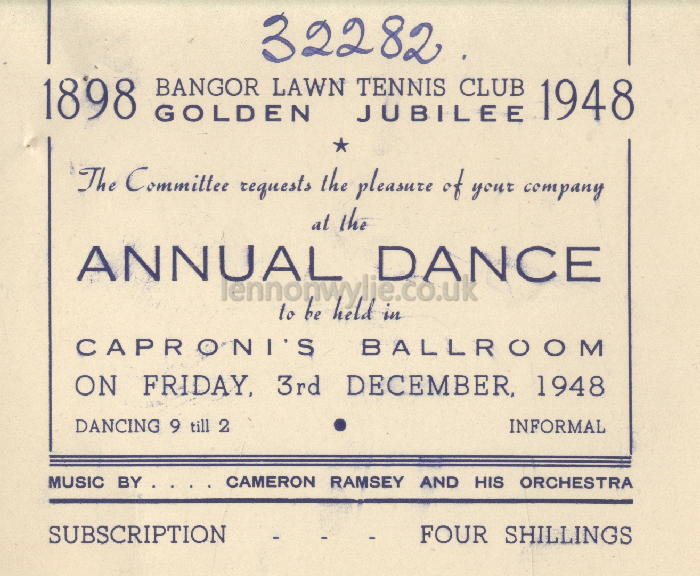 32282.
1898 BANGOR LAWN TENNIS CLUB 1948
GOLDEN JUBILEE
The Committee requests the pleasure of your company
at the
ANNUAL DANCE
lennonwylie.co.uk
to be held in
CAPRONI'S BALLROOM
ON FRIDAY, 3rd DECEMBER, 1948
DANCING 9 till 2 ● INFORMAL
MUSIC BY .... CAMERON RAMSEY AND HIS ORCHESTRA
SUBSCRIPTION - - - FOUR SHILLINGS